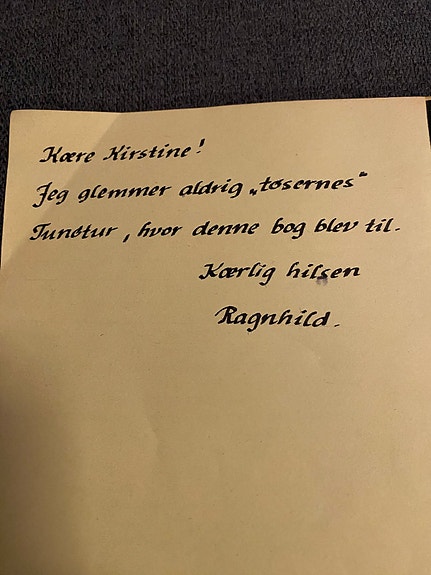 Kære Kirstine!
Jeg glemmer aldrig „tøsernes"
Tunøtur, hvor denne bog blev til.
Kærlig hilsen
Ragnhild.